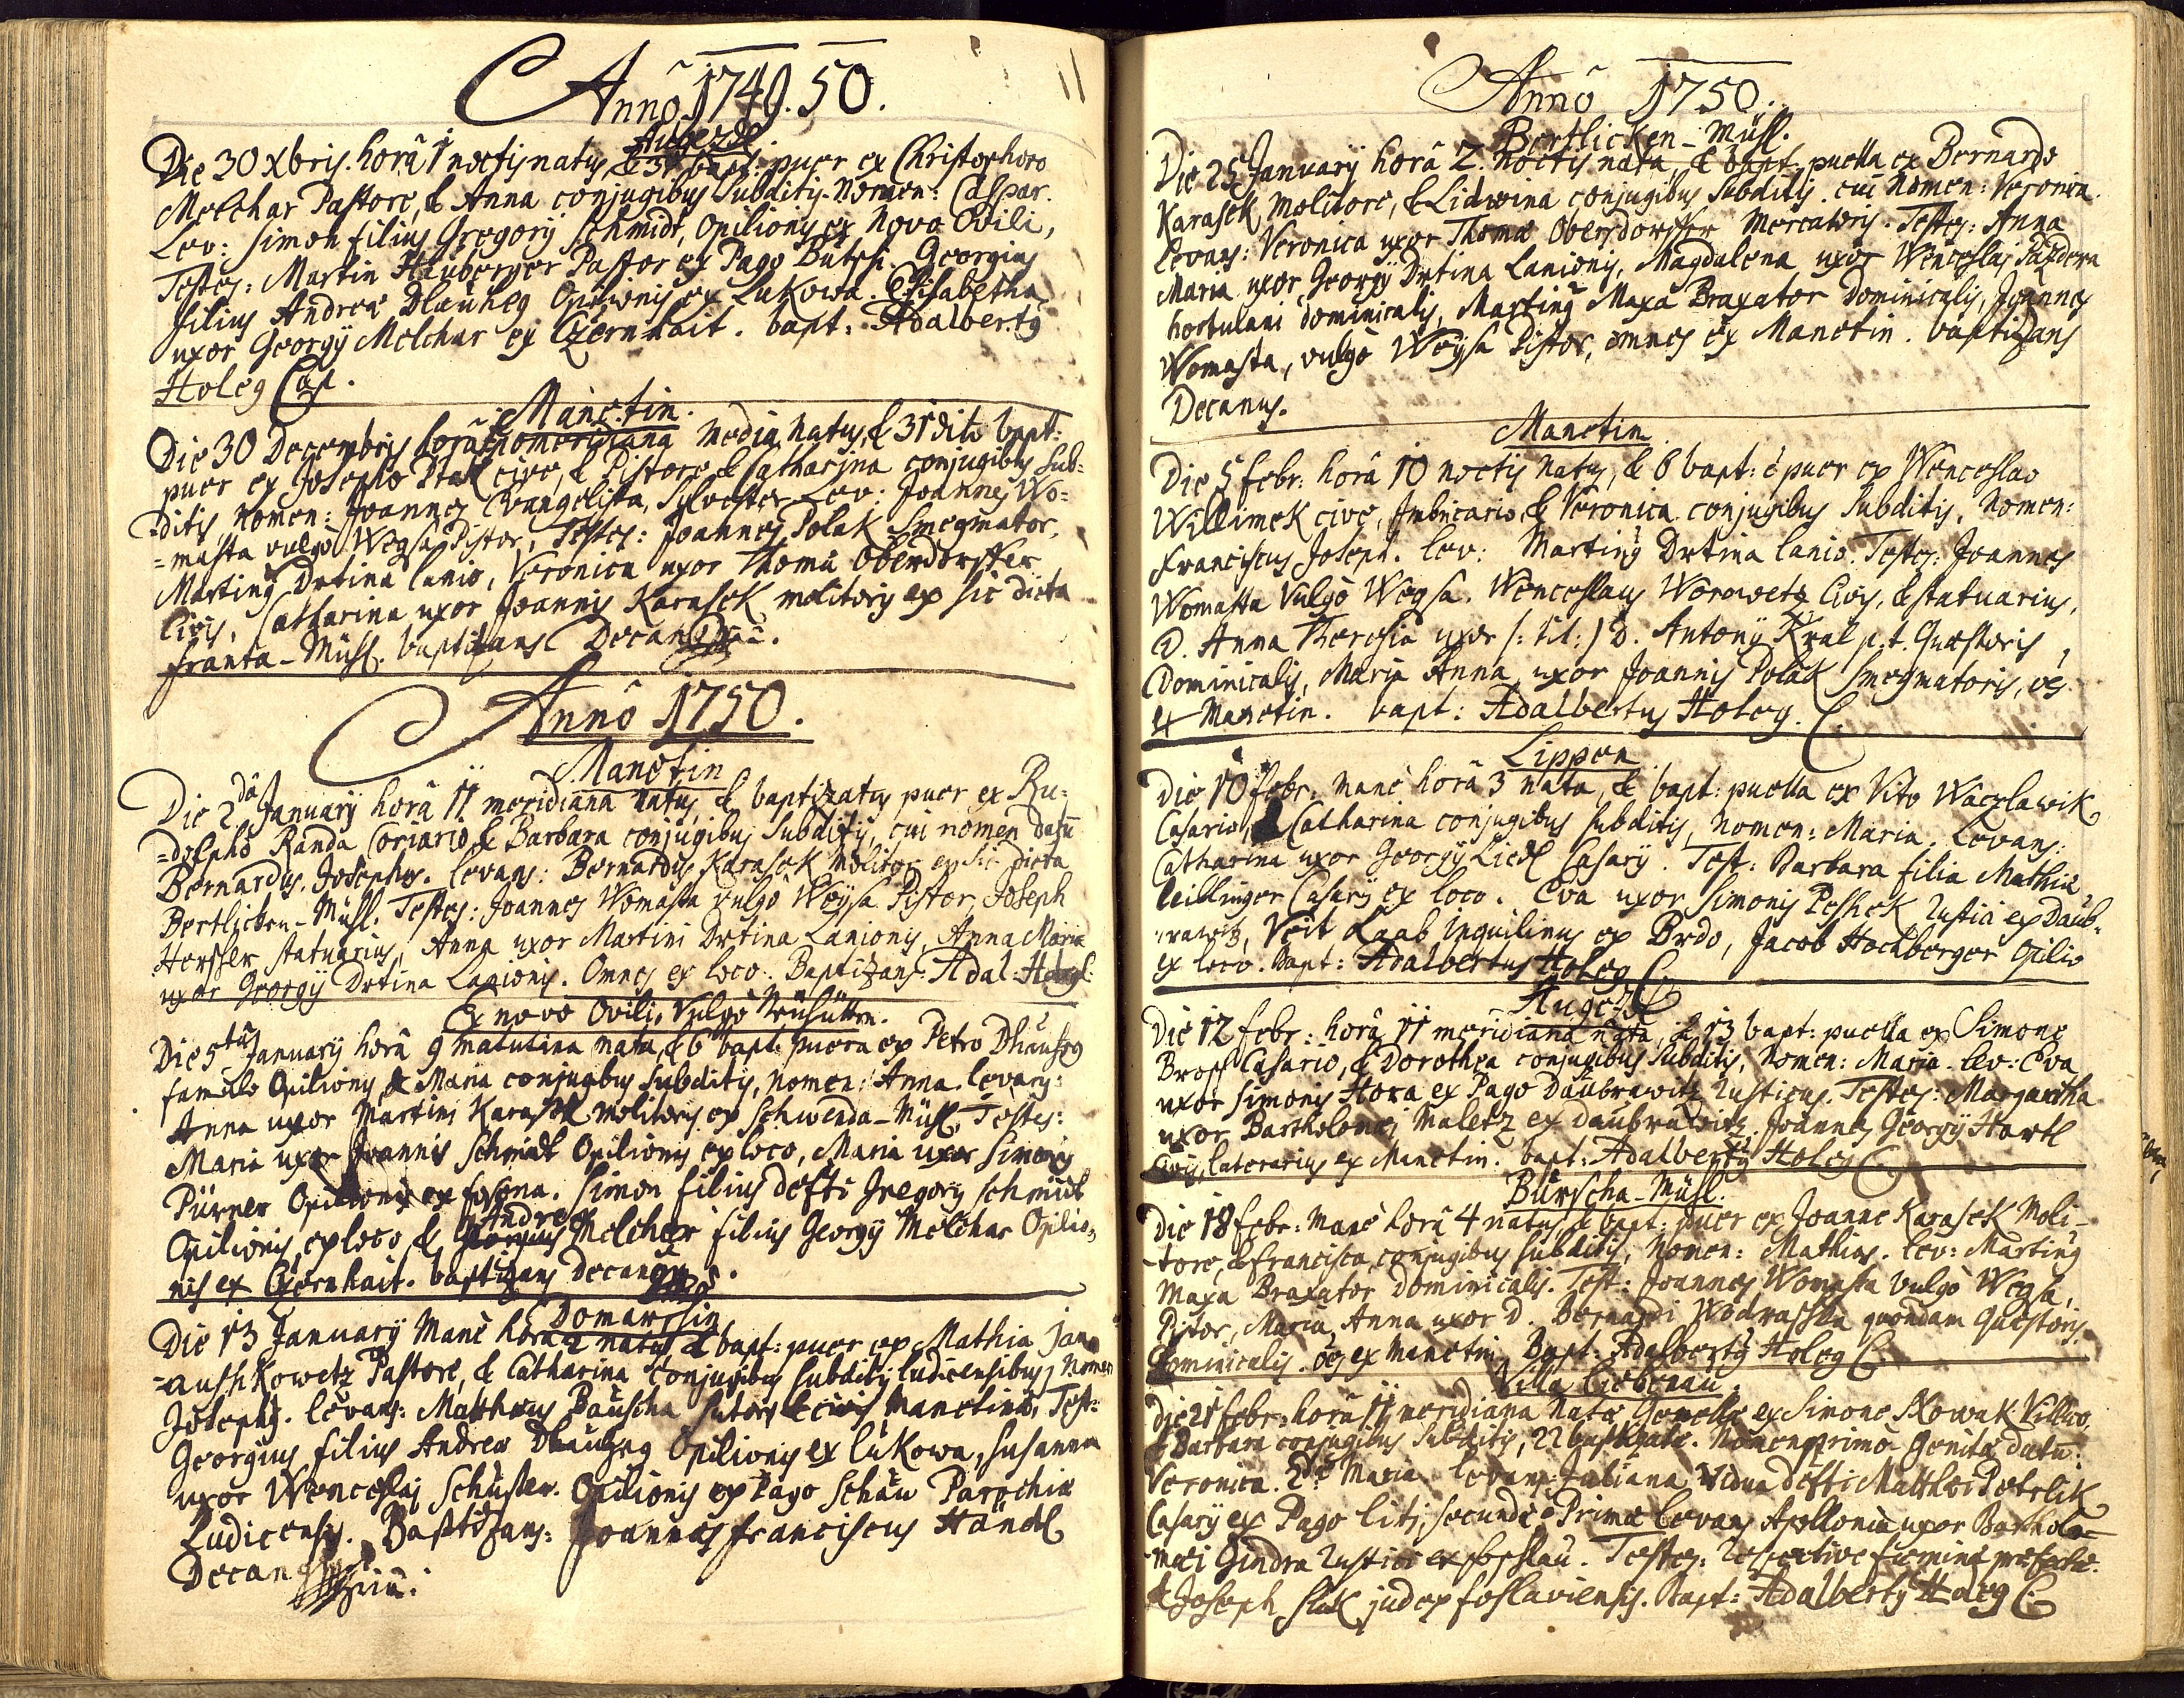 Anno 1749. 50.
11
Augezdl
Die 30 Xbris. horâ 1 noctis natus, & 31 bapt: puer ex Christophoro
Melchar Pastore, & Anna conjugibus Subditis. Nomen: Caspar.
Lev: Simon filius Gregorÿ Schmidt, Opilionis ex Novo Ovili,
Testes: Martin Hauberger Pastor ex Pago Butsch. Georgius
filius Andreæ Dlauheg Opilionis ex Lukowa. Elisabetha
uxor Georgÿ Melchar ex Czernhait. bapt: Adalbertus
Holeg Cap.
Manetin.
Die 30 Decembris horâ pomeridiana media natus, & 31 dito bapt:
puer ex Josepho Ptak cive, & Pistore & Catharina conjugibus Sub=
=ditis, Nomen: Joannes Evangelista, Sylvester. Lev: Joannes Wo=
=masta vulgò Wegsa Pistor, Testes: Joannes Polak Smegmator,
Martinus Drtina lanio, Veronica uxor Thoma Oberdorffer
Civis, Catharina uxor Joannis Karasek molitoris ex sic dicta
Franta-Mühl. baptizans Decanus
Annô 1750.
Manetin
Die 2dâ January horâ 11 meridiana natus, & baptizatus puer ex Ru=
=dolpho Randa Coriario, & Barbara conjugibus Subditis, cui nomen datū
Bernardus, Josephus. levans: Bernardus Karasek Molitor ex sic dicta
Bertlicken-Mühl. Testes: Joannes Womasta vulgò Weÿsa Pistor, Joseph
Herscher statuarius, Anna uxor Martini Drtina Lanionis, Anna Maria
uxor Georgÿ Drtina Lanionis. Omnes ex loco. Baptizans: Adal: Holegl
Ex novo Ovili, Vulgò Neuhütten.
Die 5tâ January horâ 9 matutina nata, & 6 bapt: puera ex Petro Dlauheg
famulo Opilionis, & Maria conjugibus Subditis, nomen: Anna. levans:
Anna uxor Martini Karasek molitoris ex Schwenda-Mühl, Testes:
Maria uxor Joannis Schmidt Opilionis ex loco, Maria uxor Simonis
Pürner Opilionis ex. Simon filius defti Gregorÿ Schmidt
Opilionis, ex loco & Andreas Melchar filius Georgÿ Melchar Opilio=
nis ex Czernhait. baptizans Decanus
Domarssin
Die 13 January Manè horâ 2 natus, & bapt: puer ex Mathia Jan
=aushkowetz Pastore, & Catharina conjugibus Subditis Ludicensibus, Nomen
Josephus. levans: Matthæus Bauscha sutor & civis Manetinus, Test:
Georgius filius Andreæ Dlauheg Opilionis ex Lukowa, Susanna
uxor Wenceslai Schuster. Opilionis ex Pago Schau Parochiæ
Ludicensis. Baptizans: Joannes Franciscus Händl
Decanus
Annô 1750.
Bertlicken-Mühl.
Die 25 January horâ 2. noctis nata, & bapt puella ex Bernardo
Karasek, Molitore, & Lidwina conjugibus Subditis. cui Nomen: Veronica.
Levans: Veronica uxor Thomæ Obersdorffer Mercatoris. Testes: Anna
Maria uxor Georgÿ Drtina Lanionis, Magdalena uxor Wenceslai Pazdera
hortulani dominicalis, Martinus Maxa Braxator Dominicalis, Joannes
Womasta, vulgò Weÿsa Pistor, omnes ex Manetin. baptizans
Decanus.
Manetin
Die 5 Febr: horâ 10 noctis natus, & 6 bapt: è puer ex Wenceslao
Willimek cive, Imbricario, & Veronica conjugibus Subditis, Nomen:
Franciscus Joseph. lev: Martinus Drtina lanio. Testes: Joannes
Womasta Vulgò Wegsa. Wenceslaus Worowetz Civis, & statuarius,
D. Anna Theresia uxor /: tit: / D. Antonÿ Kral p.t. Quæstoris
Dominicalis, Maria Anna uxor Joannis Polak Smegmatoris, os
ex Manetin. bapt: Adalbertus Holeg. C.
Lippen
Die 10 Febr. manè horâ 3 nata, & bapt: puella ex Vito Waczlawik
Casario, & Catharina conjugibus subditis, Nomen: Maria. Levans:
Catharina uxor Georgÿ Liedl Casarÿ. Test: Barbara filia Mathiæ
Zeillinger Casarÿ ex loco. Eva uxor Simonis Peshek Rustici ex Daub=
rawitz, Veit Laab Inquilinus ex Brdo, Jacob Hochberger Opilio
ex loco. Bapt: Adalbertus Holeg C.
Augezdl
Die 12 Febr: horâ 11 meridiana nata, & 13 bapt: puella ex Simone
Brosch Casario, & Dorothea conjugibus Subditis, Nomen: Maria. lev: Eva
uxor Simonis Hora ex Pago Daubrawitz Rusticus. Testes: Margaretha
uxor Bartholomæi Maletz ex Daubrawitz. Joannes Georgÿ Hartl
Civis, laterarius ex Manetin. bapt: Adalbertus Holeg C.
Burscha-Mühl.
Die 18 Febr: Manè horâ 4 natus & bapt: puer ex Joanne Karasek Moli-
-tore, & Francisca conjugibus subditis, Nomen: Mathias. lev: Martinus
Maxa Braxator Dominicalis. Test: Joannes Womasta Vulgò Wegsa,
Pistor, Maria, Anna uxor D. Bernardi Wodraschka quondam Quæstoris
Dominicalis. os ex Manetin. Bapt: Adalbertus Holeg C.
Villa Liebenau.
Die 21 Febr: horâ 11 meridiana Natæ Gemellæ ex Simone Nowak Villico,
& Barbara conjugibus Subditis, 22 baptizatæ. Nomen primo Genitæ datū:
Veronica. 2dæ Maria. levans Juliana Vidua defti Matthæi Petrlik
Casarÿ ex Pago Litj; secundæ Primæ Levans Apollonia uxor Bartholo=
mæi Gindra Rustici ex Foshlau. Testes: respective
& Joseph Sluk judex Foslaviensis. Bapt: Adalbertus Holeg C.